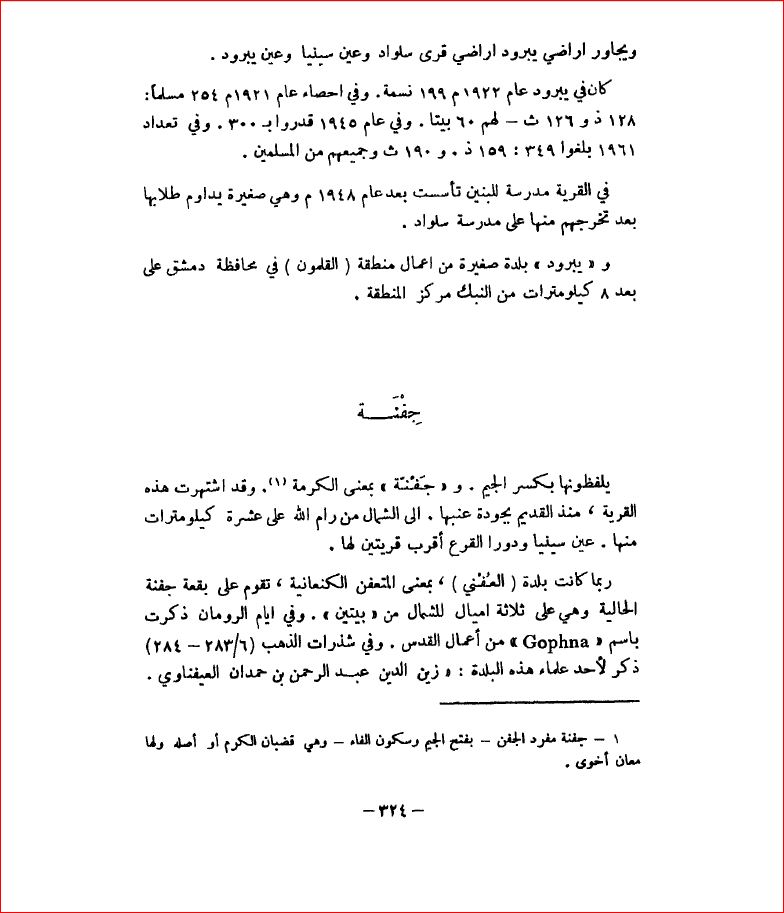 ويجاور اراضي يبرود اراضي قرى سلواد وعين سينيا وعين يبرود .
كان في يبرود عام ١٩٢٢م ١٩٩ نسمة. وفي احصاء عام ١٩٢١م ٢٥٤ مسلماً:
١٢٨ ذ و ١٢٦ ث – لهم ٦٠ بيتا . وفي عام ١٩٤٥ قدروا بـ ٣٠٠ . وفي تعداد
١٩٦١ بلغوا ٣٤٩ : ١٥٩ ذ . و ١٩٠ ث وجميعهم من المسلمين .
في القرية مدرسة للبنين تأسست بعد عام ١٩٤٨ م وهي صغيرة يداوم طلابها
بعد تخرجهم منها على مدرسة سلواد .
و « يبرود » بلدة صغيرة من اعمال منطقة ( القلمون ) في محافظة دمشق على
بعد ٨ كيلومترات من النبك مركز المنطقة .
جِفْنَــــة
يلفظونها بكسر الجيم . و « جَفْنَة » بمعنى الكرمة (١). وقد اشتهرت هذه
القرية ، منذ القديم بجودة عنبها . الى الشمال من رام الله على عشرة كيلومترات
منها . عين سيفيا ودورا القرع أقرب قريتين لها .
ربما كانت بلدة ( العُفْني ) ، بمعنى المتعفن الكنعانية ، تقوم على بقعة جفنة
الحالية وهي على ثلاثة اميال للشمال من « بيتين » . وفي ايام الرومان ذكرت
باسم « Gophna » من أعمال القدس . وفي شذرات الذهب (٢٨٣/٦ – ٢٨٤)
ذكر لأحد علماء هذه البلدة : « زين الدين عبـد الرحمن بن حمدان العيفناوي .
١ – جفنة مفرد الجفن – بفتح الجيم وسكون الفاء – وهي قضبان الكرم أو أصله ولها
معان أخوى .
– ٣٢٤ –